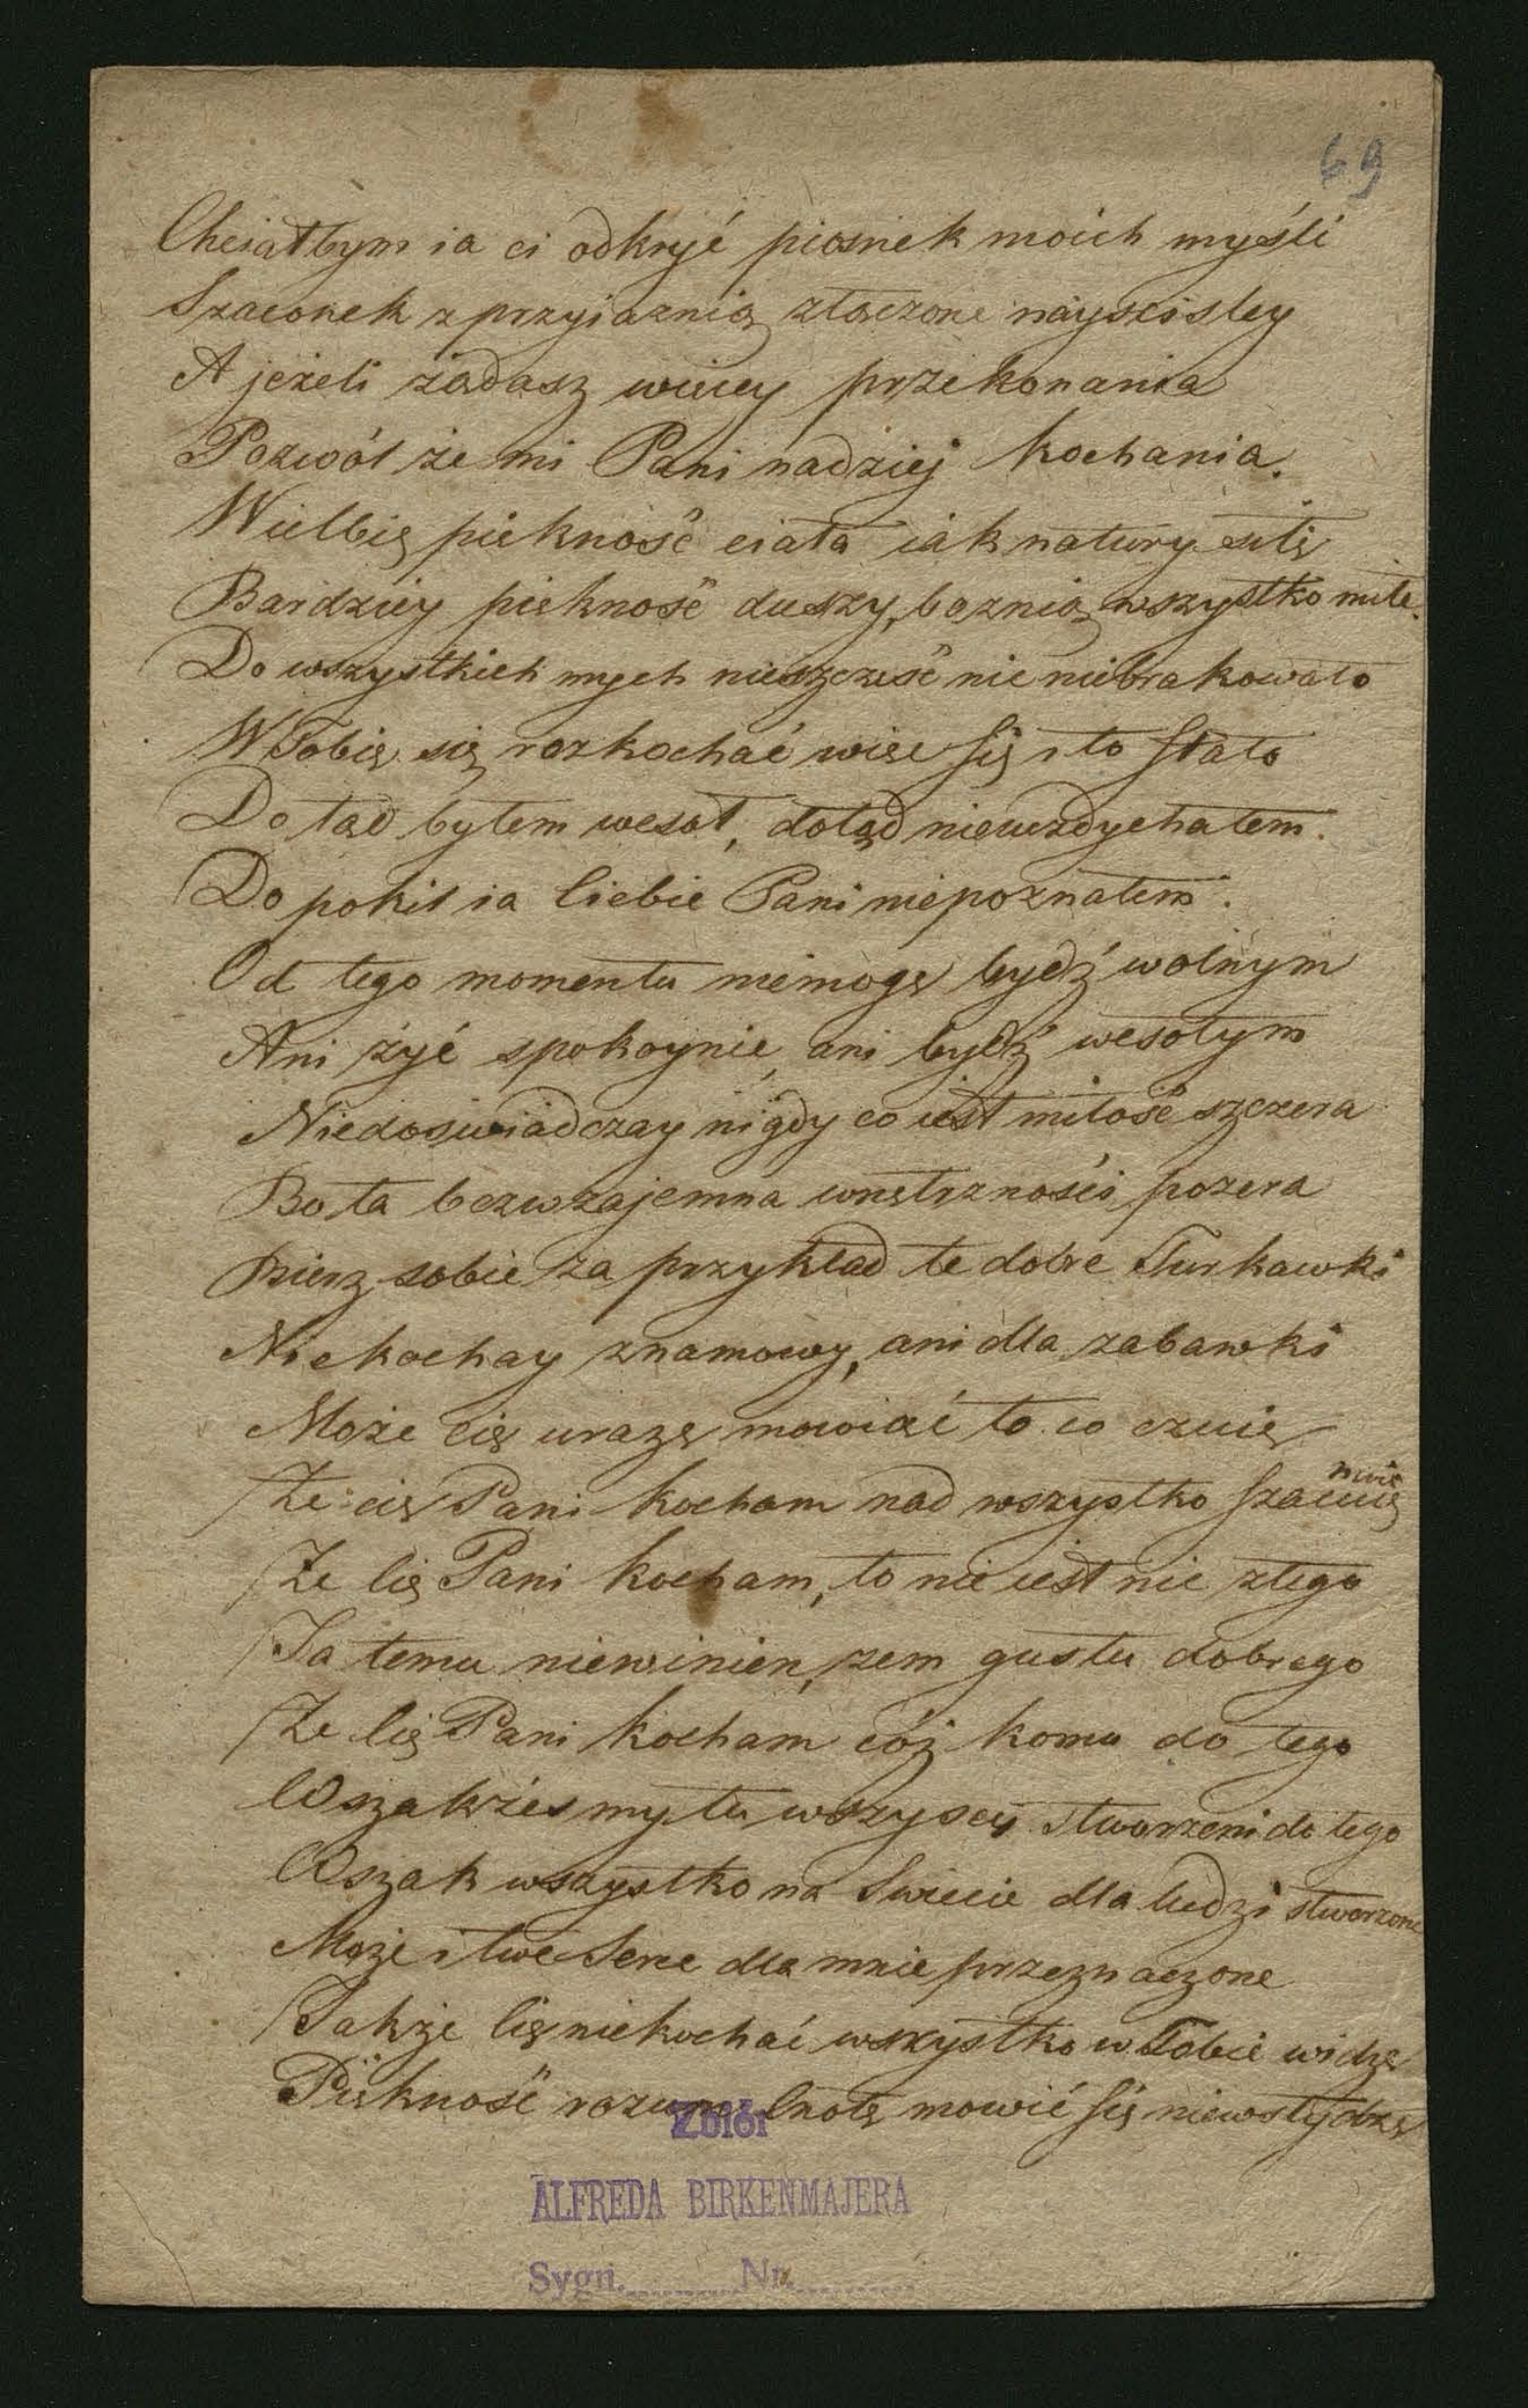 69
Chciałbym ia ci odkryć piosnek moich myśli
Szaconek z przyiaznią złączone nayscisley
A jeżeli żądasz wiecey przekonania
Pozwól że mi Pani nadziej kochania.
Wielbię piekność ciała iak natury siłę
Bardziey piekność duszy, bo znią wszystko miłe.
Do wszystkich mych nieszczęść nic niebrakowało
W Tobie się rozkochać więc się i to stało
Do tąd byłem wesoł, dotąd niewzdychałem.
Do pokiś ia Ciebie Pani niepoznałem.
Od tego momentu niemogę bydź wolnym
Ani żyć spokoynie, ani bydź wesołym
Niedoswiadczay nigdy co iest miłość szczera
Bo ta bezwzajemna wnętrzności pożera
Bierz sobie za przykład te dobre Turkawki
Niekochay znamowy, ani dla zabawki
Może cię urazę mowiąć to co czuię
Że cię Pani kocham nad wszystko szacuię
nuię
Że Cię Pani kocham, to nie iest nic złego
Ja temu niewinien, zem gustu dobrego
Że Cię Pani kocham cóż komu do tego
Wszakżeś my tu wszyscy stworzeni do tego
Wszak wszystko na Swiecie dla ludzi stworzone
Może i twe Serce dla mnie przeznaczone
Jakże Cię niekochać wszystko w Tobie widzę
Piękność rozum Cnotę mowić się niewstydzę
Zbiór
ALFREDA BIRKENMAJERA
Sygn. Nr.